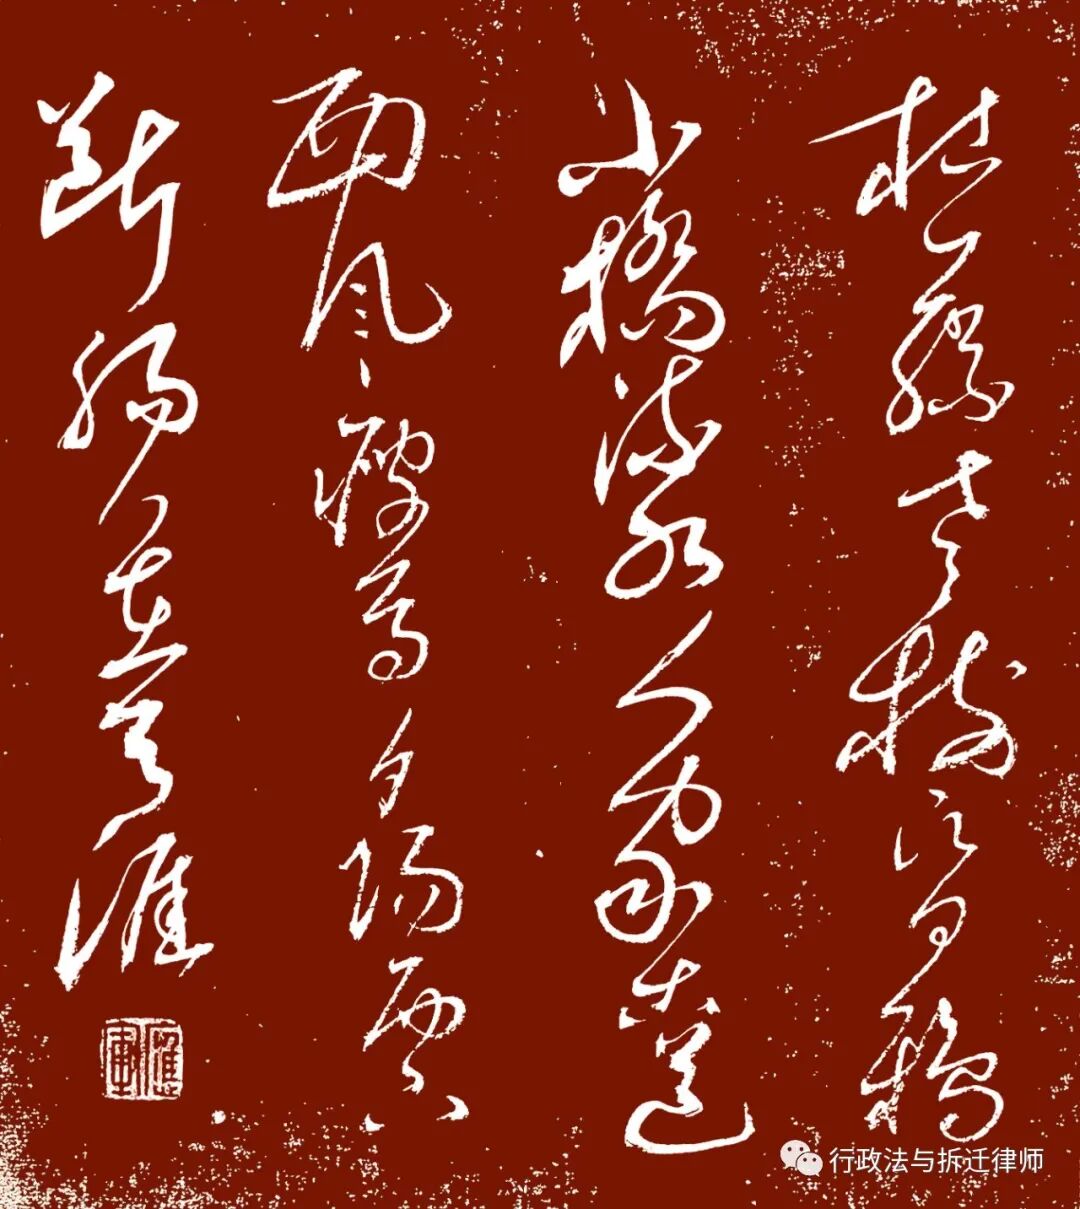 枯藤老树昏鸦
小橋流水人家古道
西风瘦马夕阳西下
断肠人在天涯
行政法与拆迁律师